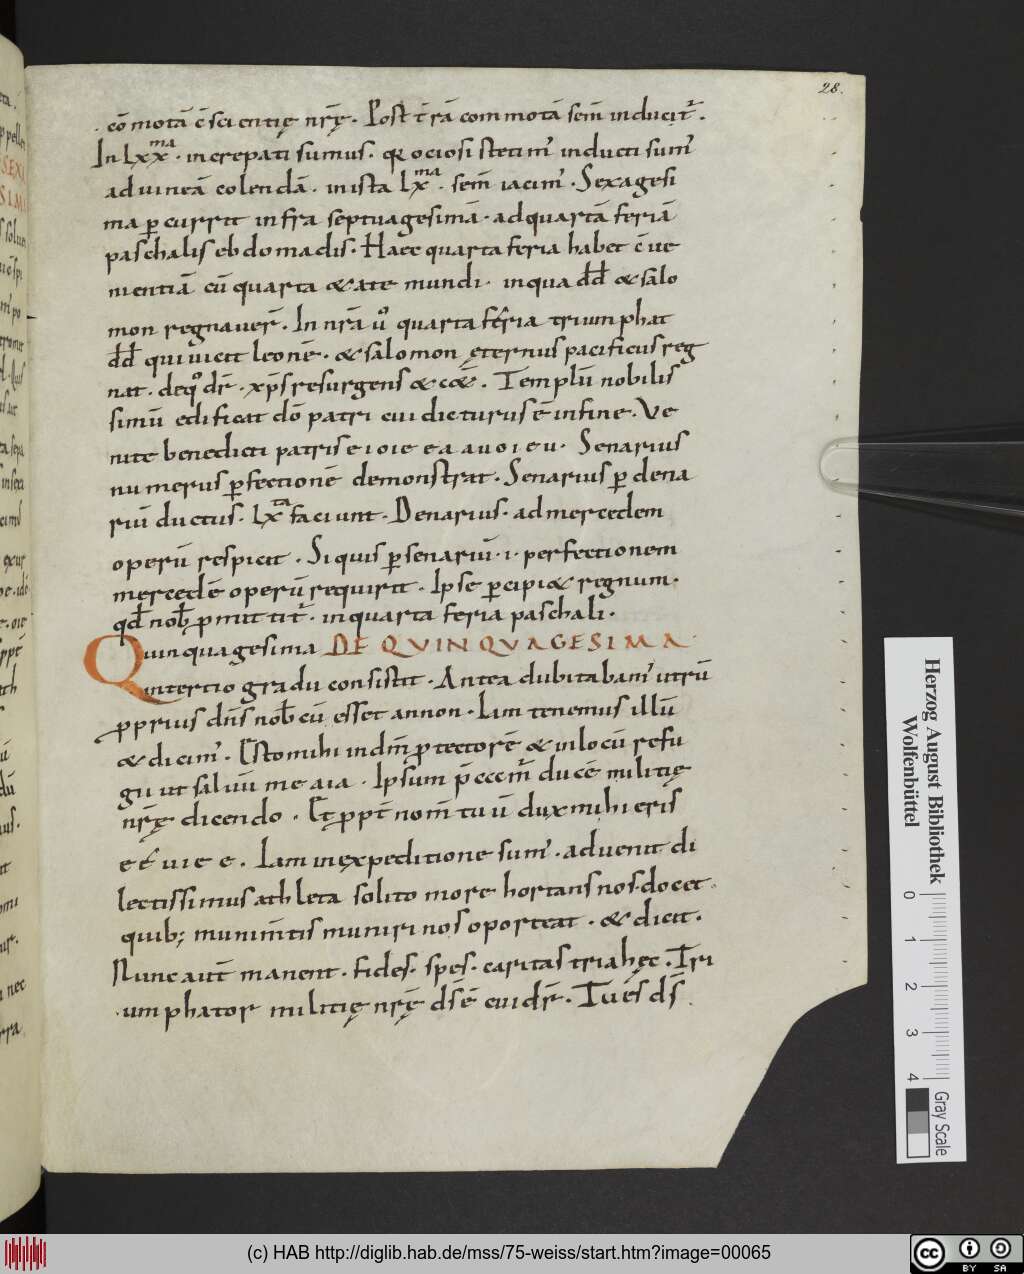 28.
cōmotā c̄scientię nr̄ę. Post t̄rā commotā sem̄ inducit᷑.
In lxxma. increpati sumus. qꝛ ociosi stetim᷑ inducti sum᷑
ad uineā colendā. in ista lxma. sem̄ iacim᷑. Sexagesi
ma ꝑcurrit infra septuagesimā. ad quartā feriā
paschalis ebdomadis. Haec quarta feria habet c̄ue
nientiā cū quarta &ate mundi. in qua dd̄ & salo
mon regnauer̄. In nr̄a uͦ quarta feria triumphat
dd̄ qui uicit leonē. & salomon ęternus pacificus reg
nat. de qͦ dr̄. xp̄s resurgens & c&̄. Templū nobilis
simū edificat dō patri cui dicturus ē in fine. Ve
nite benedicti patris e i o ie e a a u o i e u. Senarius
numerus ꝑfectionē demonstrat. Senarius ꝑ dena
riū ductus. lxta faciunt. Denarius. ad mercedem
operū respicit. Si quis ꝑ senariū. i. perfectionem
mercedē operū requirit. Ipse ꝑcipi& regnum.
qd̄ nob̄ ꝓmittit᷑. in quarta feria paschali.
Quinquagesima DE QVINQVAGESIMA
in tertio gradu consistit. Antea dubitabam᷑ utrū
ꝓprius dn̄s nob̄ cū esset annon. Iam tenemus illū
& dicim᷑. Esto mihi in dm̄ ꝓtectorē & in locū refu
gii ut saluū me aia. Ipsum p̄cem᷑ ducē militię
nr̄ę dicendo. Et ꝓpt̄ nom̄ tuū dux mihi eris
e e u i e e. Iam in expeditione sum᷑. aduenit di
lectissimus athleta solito more hortans nos. docet
quib; munim̄tis muniri nos oporteat. & dicit.
Nunc aut̄ manent. fides. spes. caritas tria hęc. Tri
umphator militię nr̄ę ds̄ ē cui dr̄. Tu es ds̄
Herzog August Bibliothek
Wolfenbüttel
0 1 2 3 4
Gray Scale
(c) HAB http://diglib.hab.de/mss/75-weiss/start.htm?image=00065
cc BY SA